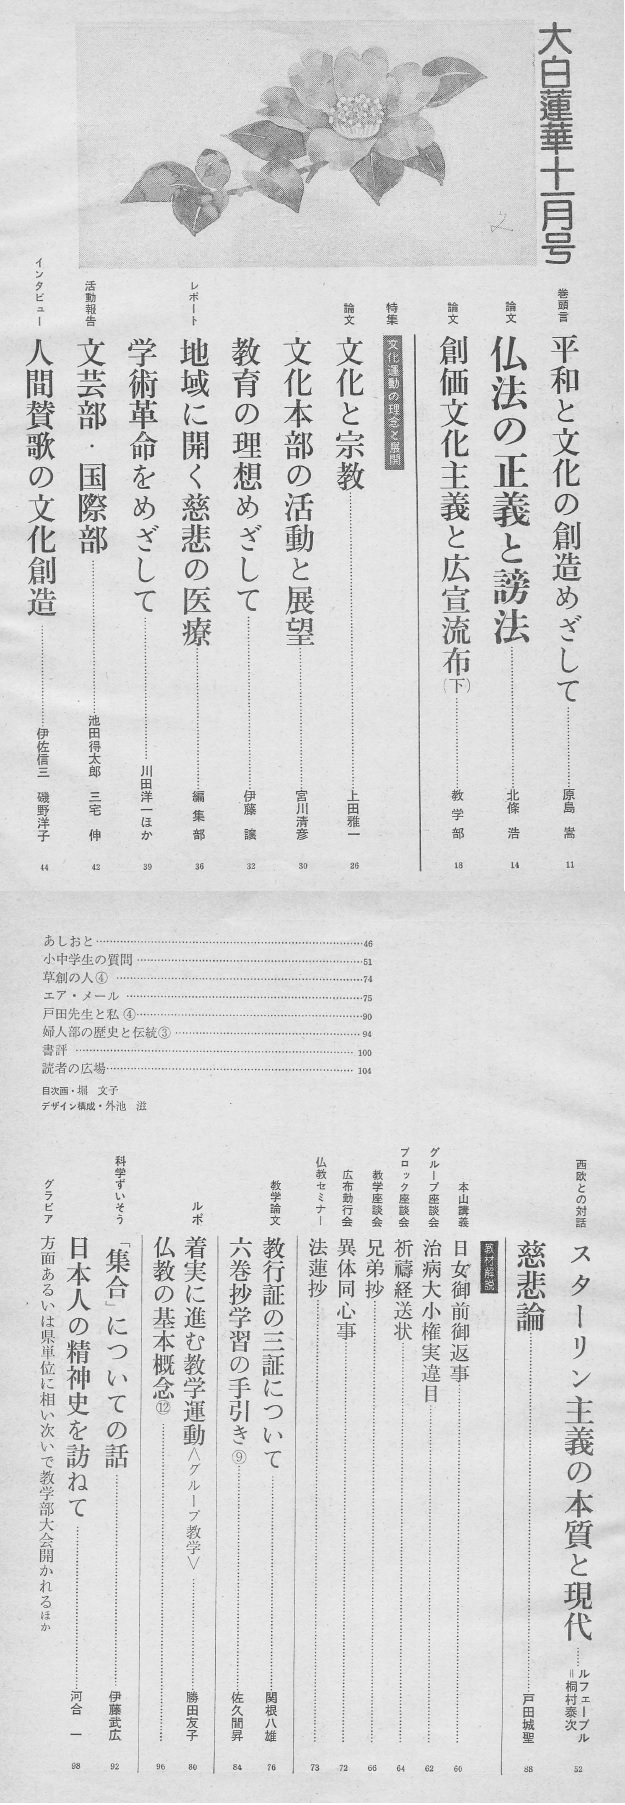 大白蓮華十一月号
巻頭言 平和と文化の創造めざして 原島 嵩 11
論文 仏法の正義と謗法 北條 浩 14
論文 創価文化主義と広宣流布(下) 教学部 18
特集 文化運動の理念と展開
論文 文化と宗教 上田雅一 26
文化本部の活動と展望 宮川清彦 30
教育の理想めざして 伊藤 譲 32
レポート 地域に開く慈悲の医療 編集部 36
学術革命をめざして 川田洋一ほか 39
活動報告 文芸部・国際部 池田得太郎 三宅 伸 42
インタビュー 人間賛歌の文化創造 伊佐信三 磯野洋子 44
あしおと 46
小中学生の質問 51
草創の人④ 74
エア・メール 75
戸田先生と私④ 90
婦人部の歴史と伝統③ 94
書評 100
読者の広場 104
目次画・堀 文子
デザイン構成・外池 滋
西欧との対話 スターリン主義の本質と現代 ルフェーブル=桐村泰次 52
慈悲論 戸田城聖 88
教材解説
本山講義 日女御前御返事 60
グループ座談会 治病大小権実違目 62
ブロック座談会 祈禱経送状 64
教学座談会 兄弟抄 66
広布勤行会 異体同心事 72
仏教セミナー 法蓮抄 73
教学論文 教行証の三証について 関根八雄 76
六巻抄学習の手引き⑨ 佐久間昇 84
ルポ 着実に進む教学運動〈グループ教学〉 勝田友子 80
仏教の基本概念⑫ 96
科学ずいそう 「集合」についての話 伊藤武広 92
日本人の精神史を訪ねて 河合 一 98
グラビア 方面あるいは県単位に相い次いで教学部大会開かれるほか